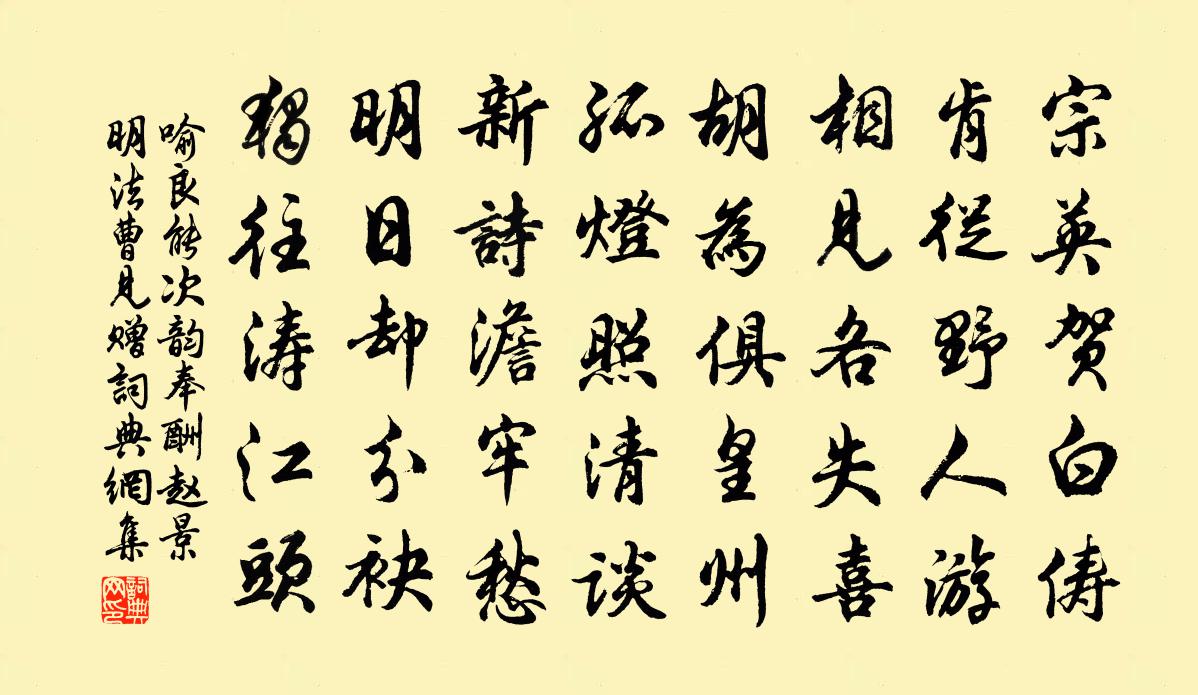 宗英贺白俦
肯從野人游
相見各失喜
胡為俱皇州
孤燈照清谈
新詩澹牢愁
明日却分袂
獨往涛江頭
喻良能次韵奉酬赵景
明法曹見赠詞典網集
詞典网印